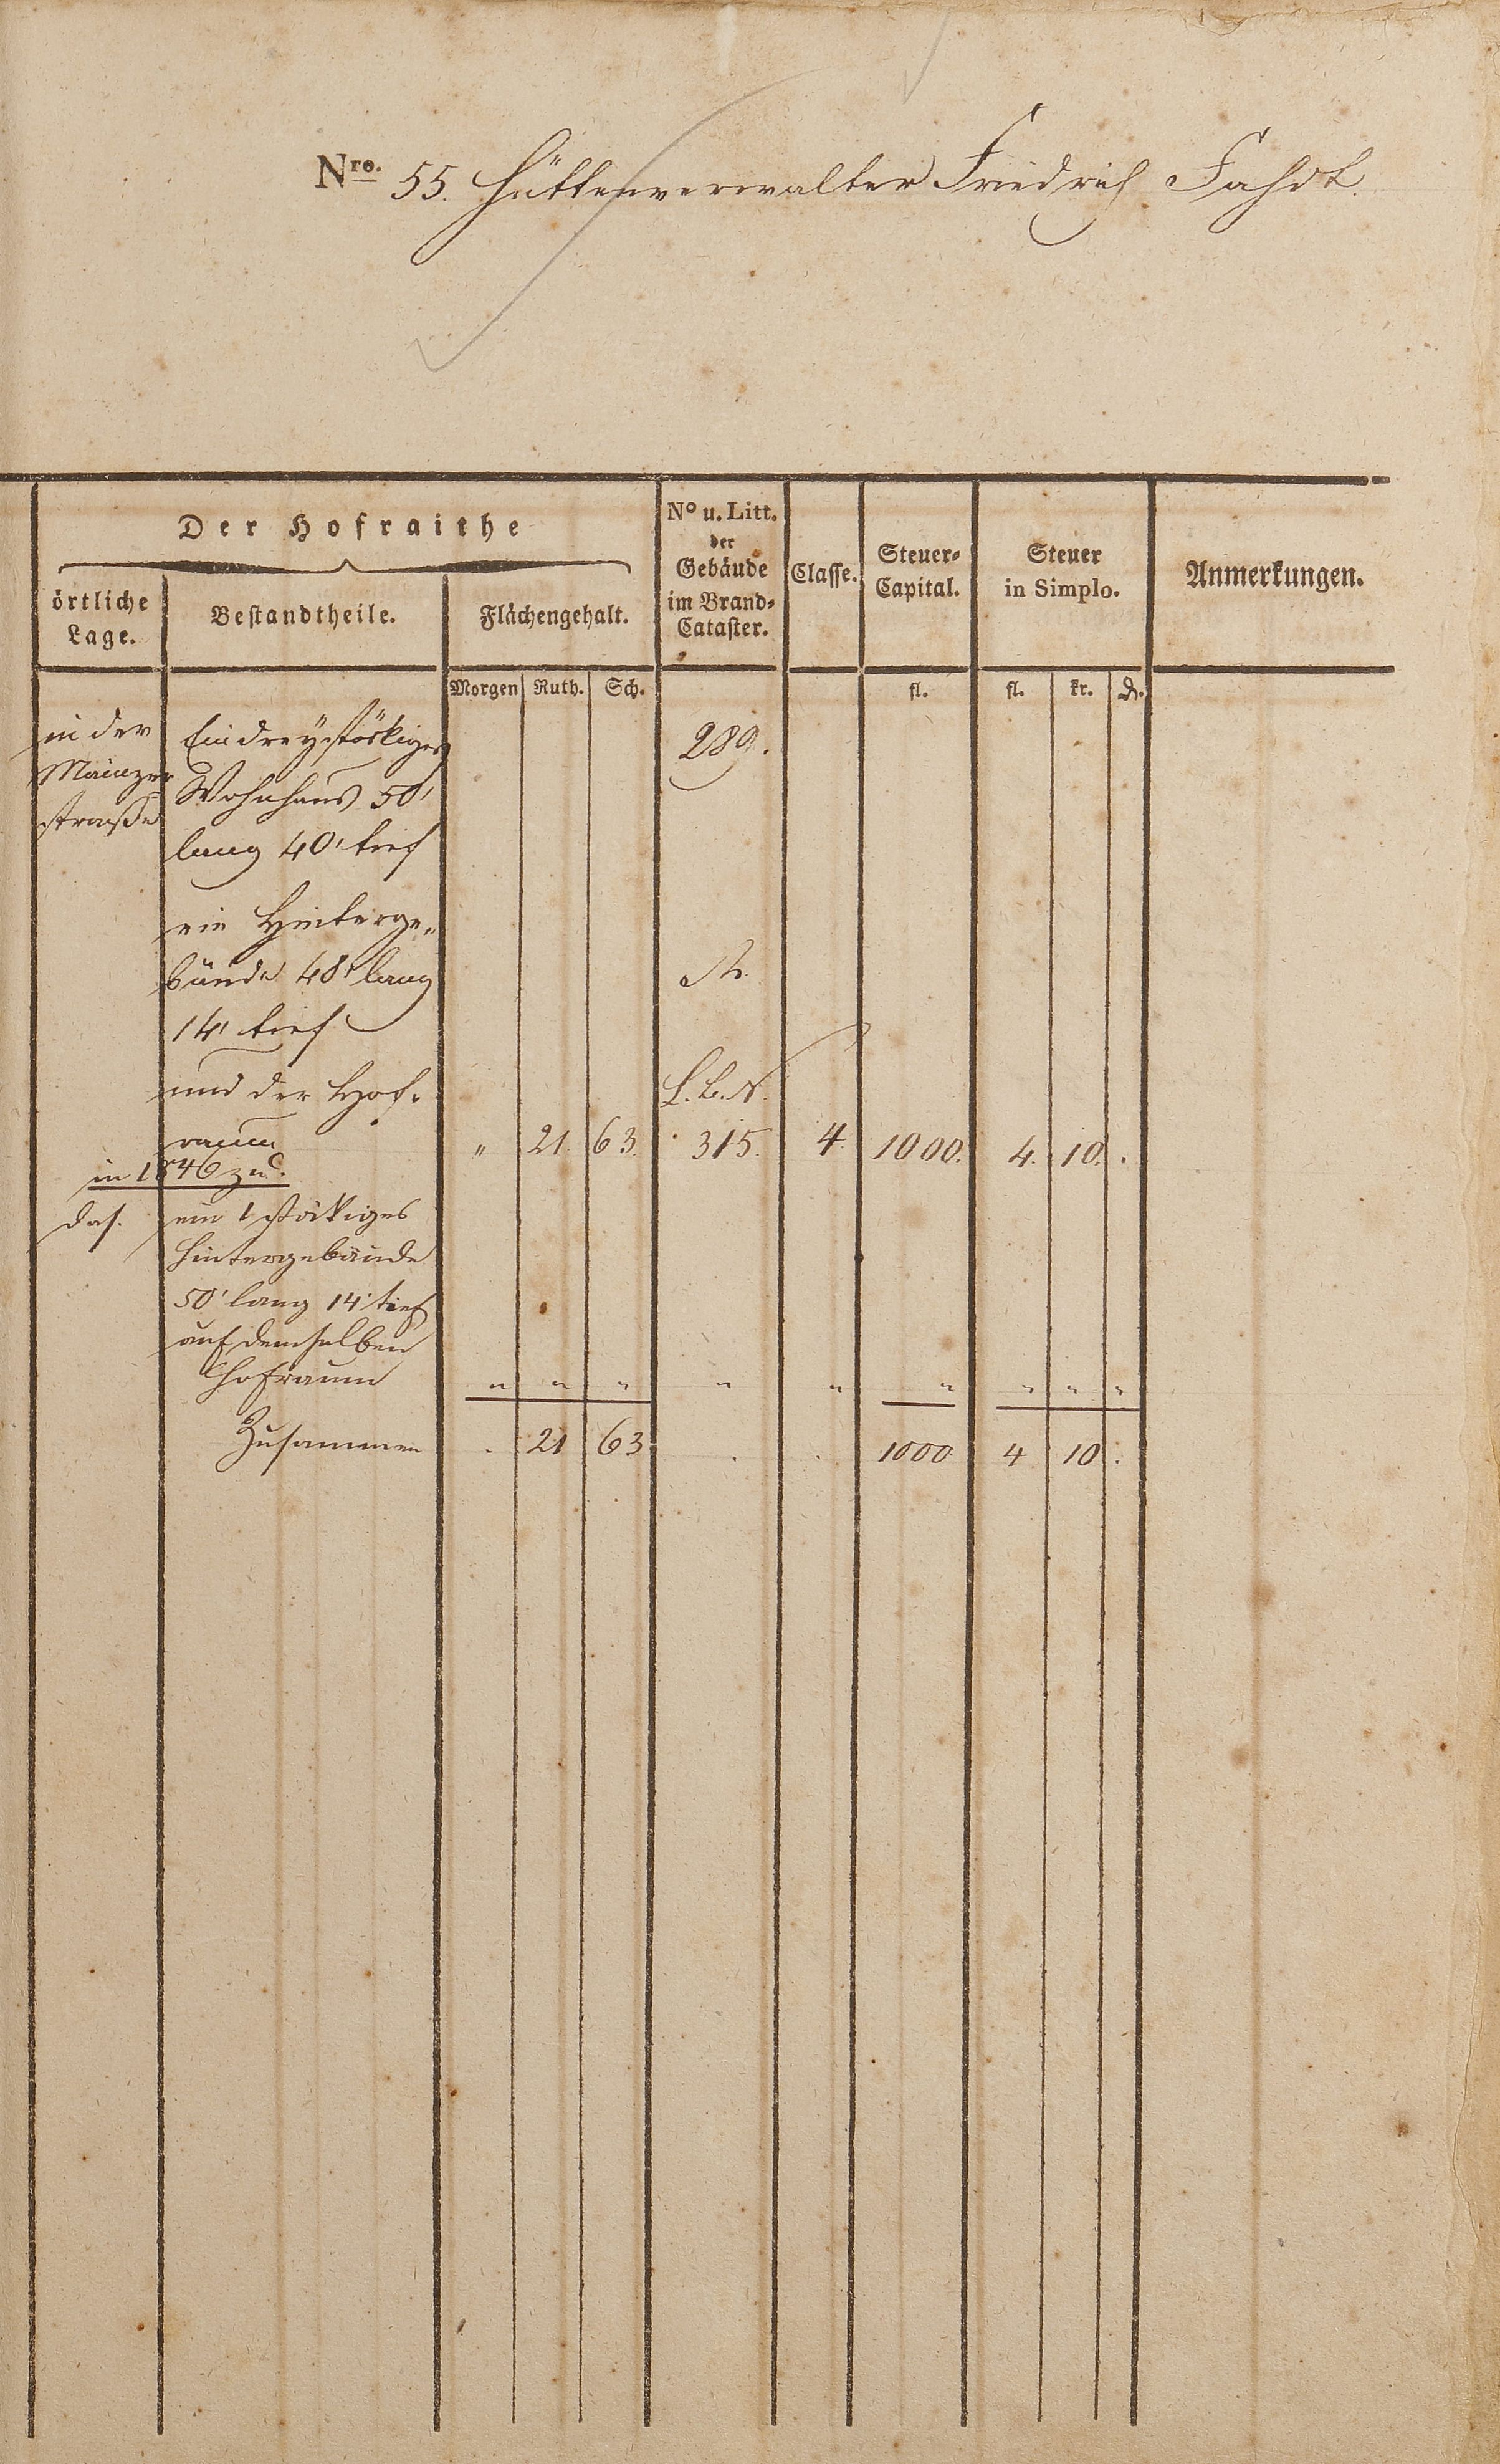 Nro. 55. Hüttenverwalter Friedrich Fahdt.
Der Hofraithe
örtliche Lage.
Bestandtheile.
Flächengehalt.
No u. Litt. der Gebäude im Brand-Cataster.
Classe.
Steuer-Capital.
Steuer in Simplo.
Anmerkungen.
Morgen Ruth. Sch. fl. fl. kr. d.
in der Ein dreystöckiges 289.
Mainzer Wohnhaus 50'
straße
lang 40' tief
ein Hinterge-
bäude 48' lang
14' tief
und der Hof-
raum " 21. 63. 315. 4. 1000. 4. 10. .
in 1846 zu.
das. ein 1 stöckiges
Hintergebäude
50' lang 14' tief
auf demselben
Hofraum " " " " " " " " "
Zusammen . 21 63 . . 1000 4 10 .